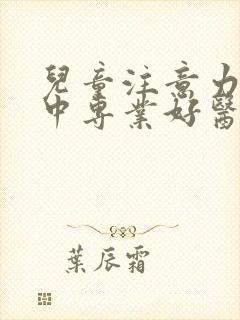 兒童注意力
中專業好醫
葉辰霜